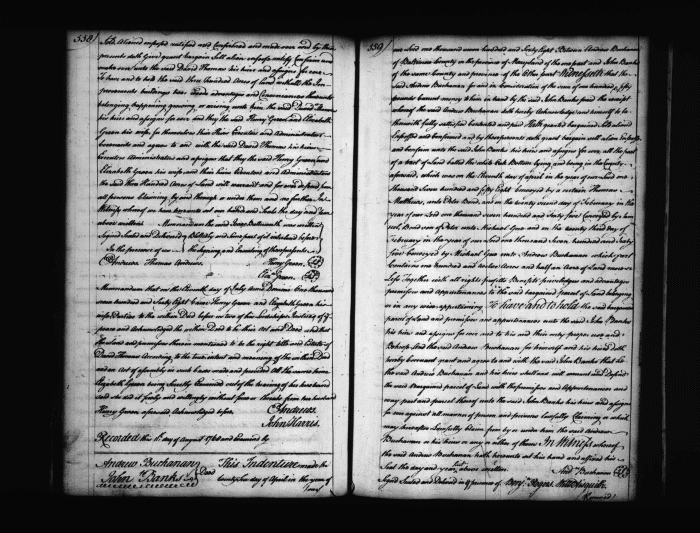 558
Sold Aliened enfeoffed ratified and Confirmed and made over and by these
presents doth Give grant bargain Sell alien enfeoff ratify Confirm and
make over unto the said David Thomas his heirs and assigns for ever
To have and to hold the said three Hundred Acres of Land with all the Im
provements buildings ways woods advantages and Conveniences thereunto
belonging happening growing or arising unto him the said David Thomas
his heirs and assigns for ever and they the said Henry Green and Elizabeth
Green his wife for themselves their Heirs Executors and Administrators
Covenants and agree to and with the said David Thomas his heirs
Executors Administrators and assigns that they the said Henry Green and
Elizabeth Green his wife and their heirs Executors and Administrators
the said three Hundred Acres of Land will warrant and for ever defend from
all persons Claiming by and through or under them and no further In
Witness whereof we have hereunto set our hands and Seals the day and year
above written
Signed Sealed and Delivered
In the presence of us
Andrew Thomas Andrew
Henry Green
Eliz Green
Memorandum that on the Eleventh day of July Anno Domini One thousand
seven hundred and Sixty Eight Came Henry Green and Elizabeth Green his
wife Parties to the within Deed before us two of his Lordships Justices of y
peace and Acknowledged the within Deed to be their act and Deed and that
the Land and premises therein mentioned to be the right title and Estate of
David Thomas According to the true intent and meaning of the within Deed
and an Act of Assembly in such Cases made and provided All the same time
Elizabeth Green being Secretly Examined out of the hearing of her husband
said she did it freely and willingly without force or threats from her husband
Henry Green aforesaid Acknowledged before
Andrews
John Harris
Recorded this 1st day of August 1768 and Examined by
Andrew Buchanan
John Banks
Deed
This Indenture made the
twenty day of April in the year of
559
our Lord one thousand seven hundred and Sixty Eight Between Andrew Buchanan
of Baltimore County in the province of Maryland of the one part and John Banks
of the same County and province of the Other part Witnesseth that the
said Andrew Buchanan for and in Consideration of the sum of one hundred & fifty
pounds Current money them in hand by the said John Banks paid the receipt
whereof the said Andrew Buchanan doth hereby Acknowledge and himself to be
therewith fully satisfied contented and paid Hath granted bargained Aliened
Enfeoffed and Confirmed and by these presents doth grant bargain sell alien Enfeoffe
and Confirm unto the said John Banks his heirs and assigns for ever all the part
of a tract of Land called the white Oak Bottom lying and being in the County
aforesaid, which was on the Eleventh day of april in the year of our Lord one
thousand Seven hundred and fifty Eight Conveyed by a certain Thomas
Matthews unto Peter Bond, and on the twenty second day of February in the
year of our Lord one thousand seven hundred and Sixty five Conveyed by
Bond son of Peter unto Michael Gua and on the twenty third day of
February in the year of our Lord one thousand Seven hundred and Sixty
five Conveyed by Michael Gua unto Andrew Buchanan which part
Contains one hundred and twelve Acres and half an Acre of Land more or
less Together with all rights profits Benefits priviledges and advantages
premises and appurtenances to the said bargained parcel of Land belonging
or in any wise appertaining To have and to hold the said bargained
parcel of Land and premises and appurtenances unto the said John Banks
his heirs and assigns for ever and to his and their only proper use and
Behoof And the said Andrew Buchanan for himself and his heirs doth
hereby Covenant grant and agree to and with the said John Banks that he
the said Andrew Buchanan and his heirs shall and will warrant and Defend
the said Bargained parcel of Land with the premises and Appurtenances and
every part and parcel thereof unto the said John Banks his heirs and assigns
for ever against all manner of person and persons lawfully Claiming or which
may hereafter Lawfully Claim from by or under him the said Andrew
Buchanan or his heirs or any or either of them In Witness whereof
the said Andrew Buchanan hath hereunto set his hand and affixed his
Seal the day and year first above written
And Buchanan
Signed Sealed and Delivered in y presence of Benj. Rogers